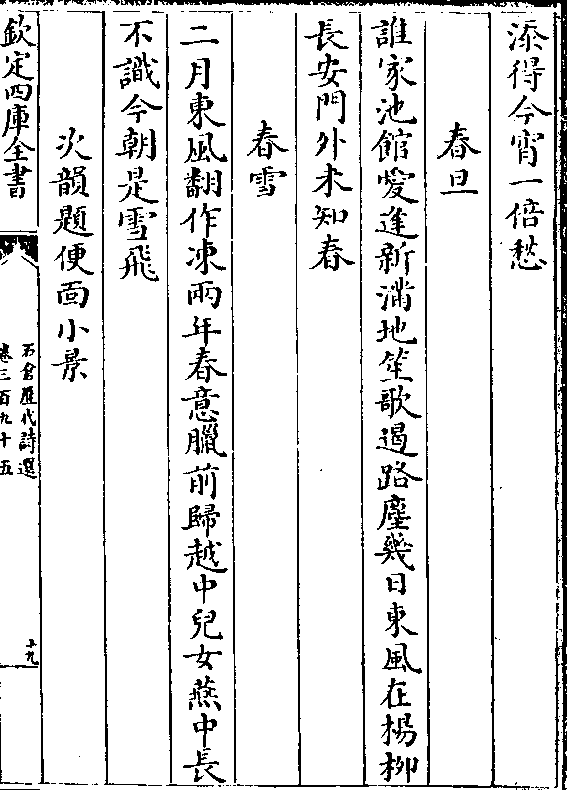 添得今宵一倍愁
春旦
誰家池館愛逢新滿地笙歌遏路塵幾日東風在楊柳
長安門外未知春
春雪
二月東風翻作凍兩年春意臘前歸越中兒女燕中長
不識今朝是雪飛
次韻題便面小景
欽定四庫全書
石倉歷代詩選
卷三百九十五
十九